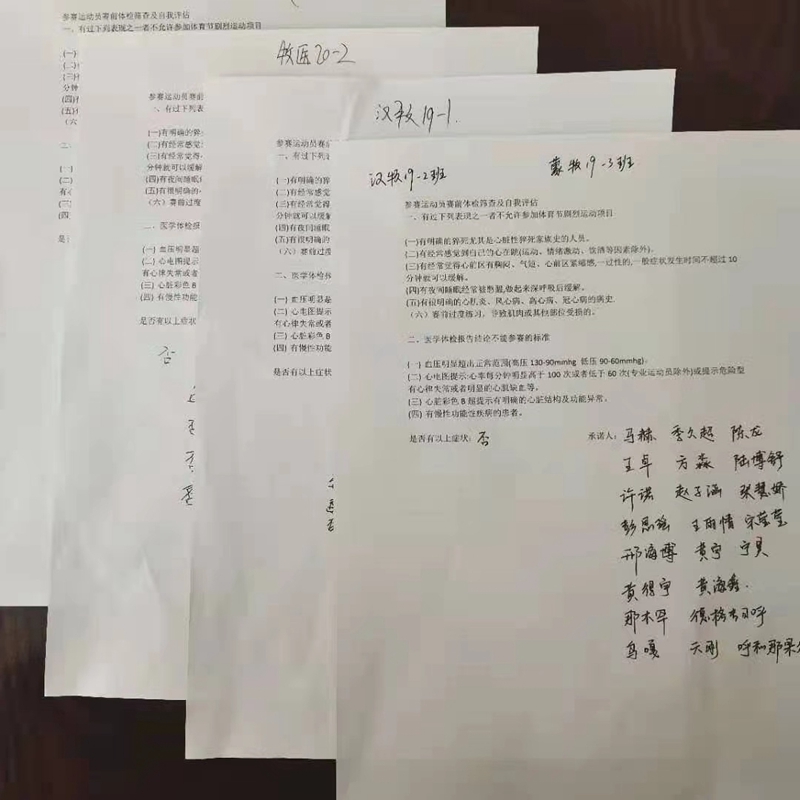 参赛运动员赛前体检筛查及自我评估
一、有过下列表现之一者不允许参加体育节剧烈运动项目
牧医20-2
参赛运动员赛前
一、有过下列表
(一)有明确的猝
(二)有经常感觉
(三)有经常觉得
分钟就可以缓解
(四)有夜间睡眠
(五)有很明确的
(六)赛前过度
二、医学体检报
(一)血压明显超
(二)心电图提示
有心律失常或者
(三)心脏彩色B
(四)有慢性功能
是否有以上症状
否
汉牧19-1
参赛运动员赛前
一、有过下列表
(一)有明确的猝
(二)有经常感觉
(三)有经常觉得
分钟就可以缓解
(四)有夜间睡眠
(五)有很明确的
(六)赛前过度
二、医学体检
(一)血压明显
(二)心电图提示
有心律失常或者
(三)心脏彩色B
(四)有慢性功能
是否有以上症状
汉牧19-2班 蒙牧19-3班
参赛运动员赛前体检筛查及自我评估
一、有过下列表现之一者不允许参加体育节剧烈运动项目
(一)有明确的猝死尤其是心脏性猝死家族史的人员。
(二)有经常感觉到自己的心在跳(运动、情绪激动、饮酒等因素除外)。
(三)有经常觉得心前区有胸闷、气短、心前区紧缩感,一过性的,一般症状发生时间不超过 10
分钟就可以缓解。
(四)有夜间睡眠经常被憋醒,做起来深呼吸后缓解。
(五)有很明确的心肌炎、风心病、高心病、冠心病的病史.
(六)赛前过度练习,导致肌肉或其他部位受损的。
二、医学体检报告结论不能参赛的标准
(一)血压明显超出正常范围(高压 130-90minhg 低压 90-60mmhg)。
(二)心电图提示:心率每分钟明显高于 100 次或者低于 60 次(专业运动员除外)或提示危险型
有心律失常或者明显的心肌缺血等。
(三)心脏彩色 B 超提示有明确的心脏结构及功能异常。
(四)有慢性功能性疾病的患者。
是否有以上症状: 否 承诺人: 马赫 李久超 陈龙
王卓 方淼 陆博舒
许诺 赵子涵 张慧娇
彭思瑶 王雨情 宋莹莹
邢海博 黄宇 宁贝
黄绍宇 黄海鑫
那木罕
乌嘎 天刚 呼和那